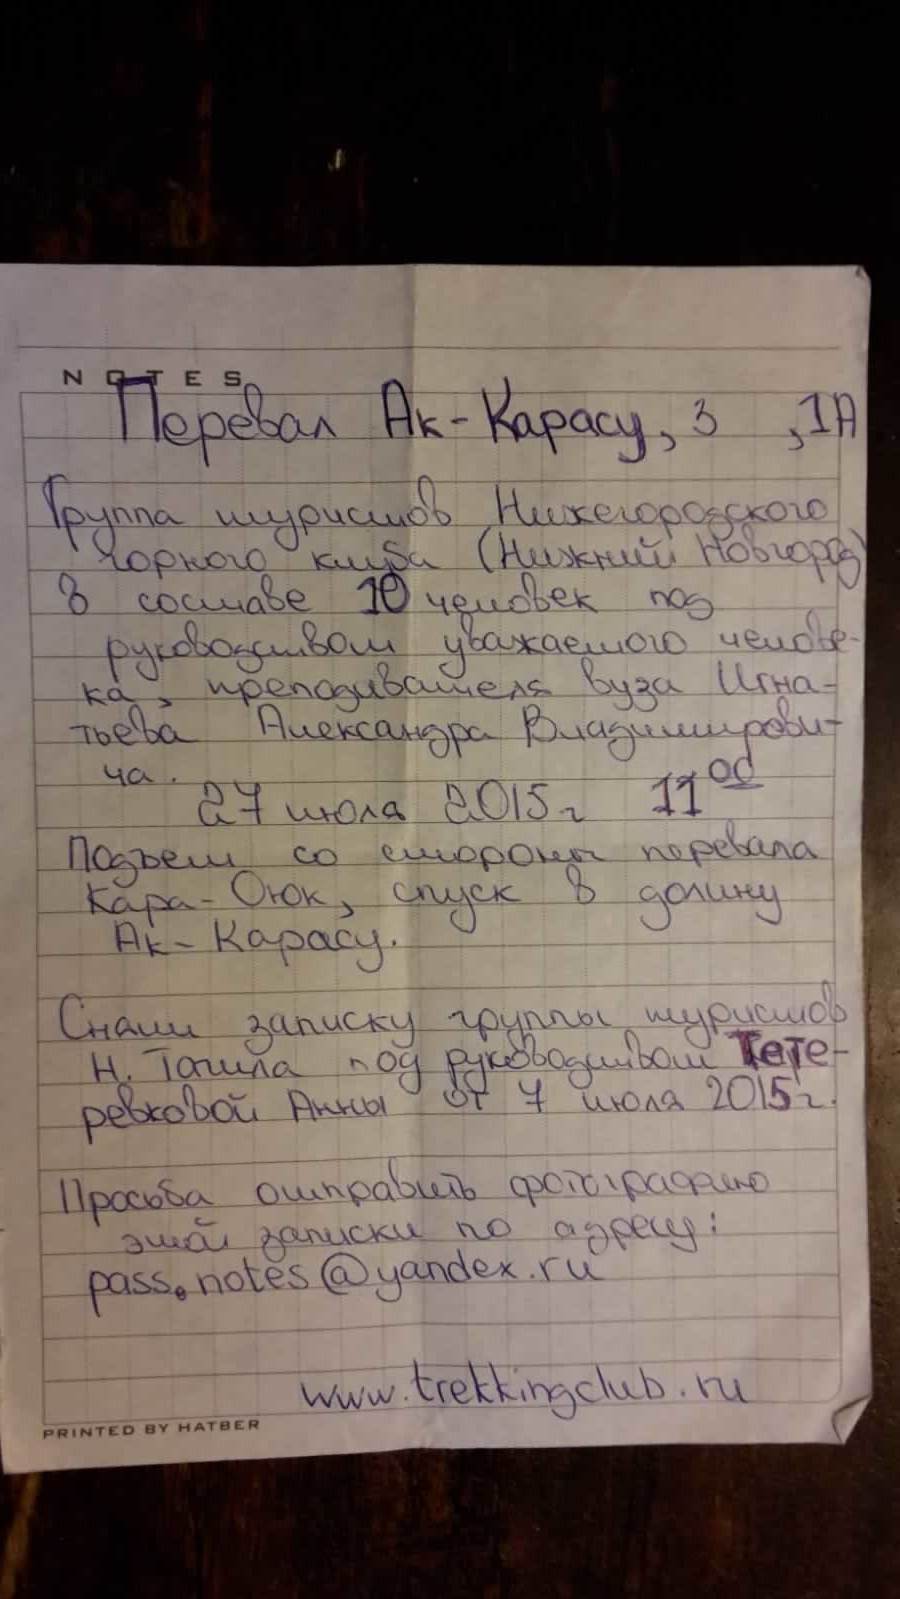 NOTES
Перевал Ак-Карасу, 3 , 1А
Группа туристов Нижегородского
горного клуба (Нижний Новгород)
в составе 10 человек под
руководством уважаемого челове-
ка, преподавателя вуза Игна-
тьева Александра Владимирови-
ча.
27 июля 2015г 11 00
Подъем со стороны перевала
Кара-Оюк, спуск в долину
Ак-Карасу.
Сняли записку группы туристов
Н. Тагила под руководством Тете-
ревковой Анны от 7 июля 2015г.
Просьба отправить фотографию
этой записки по адресу:
pass.notes@yandex.ru
www.trekkingclub.ru
PRINTED BY HATBER